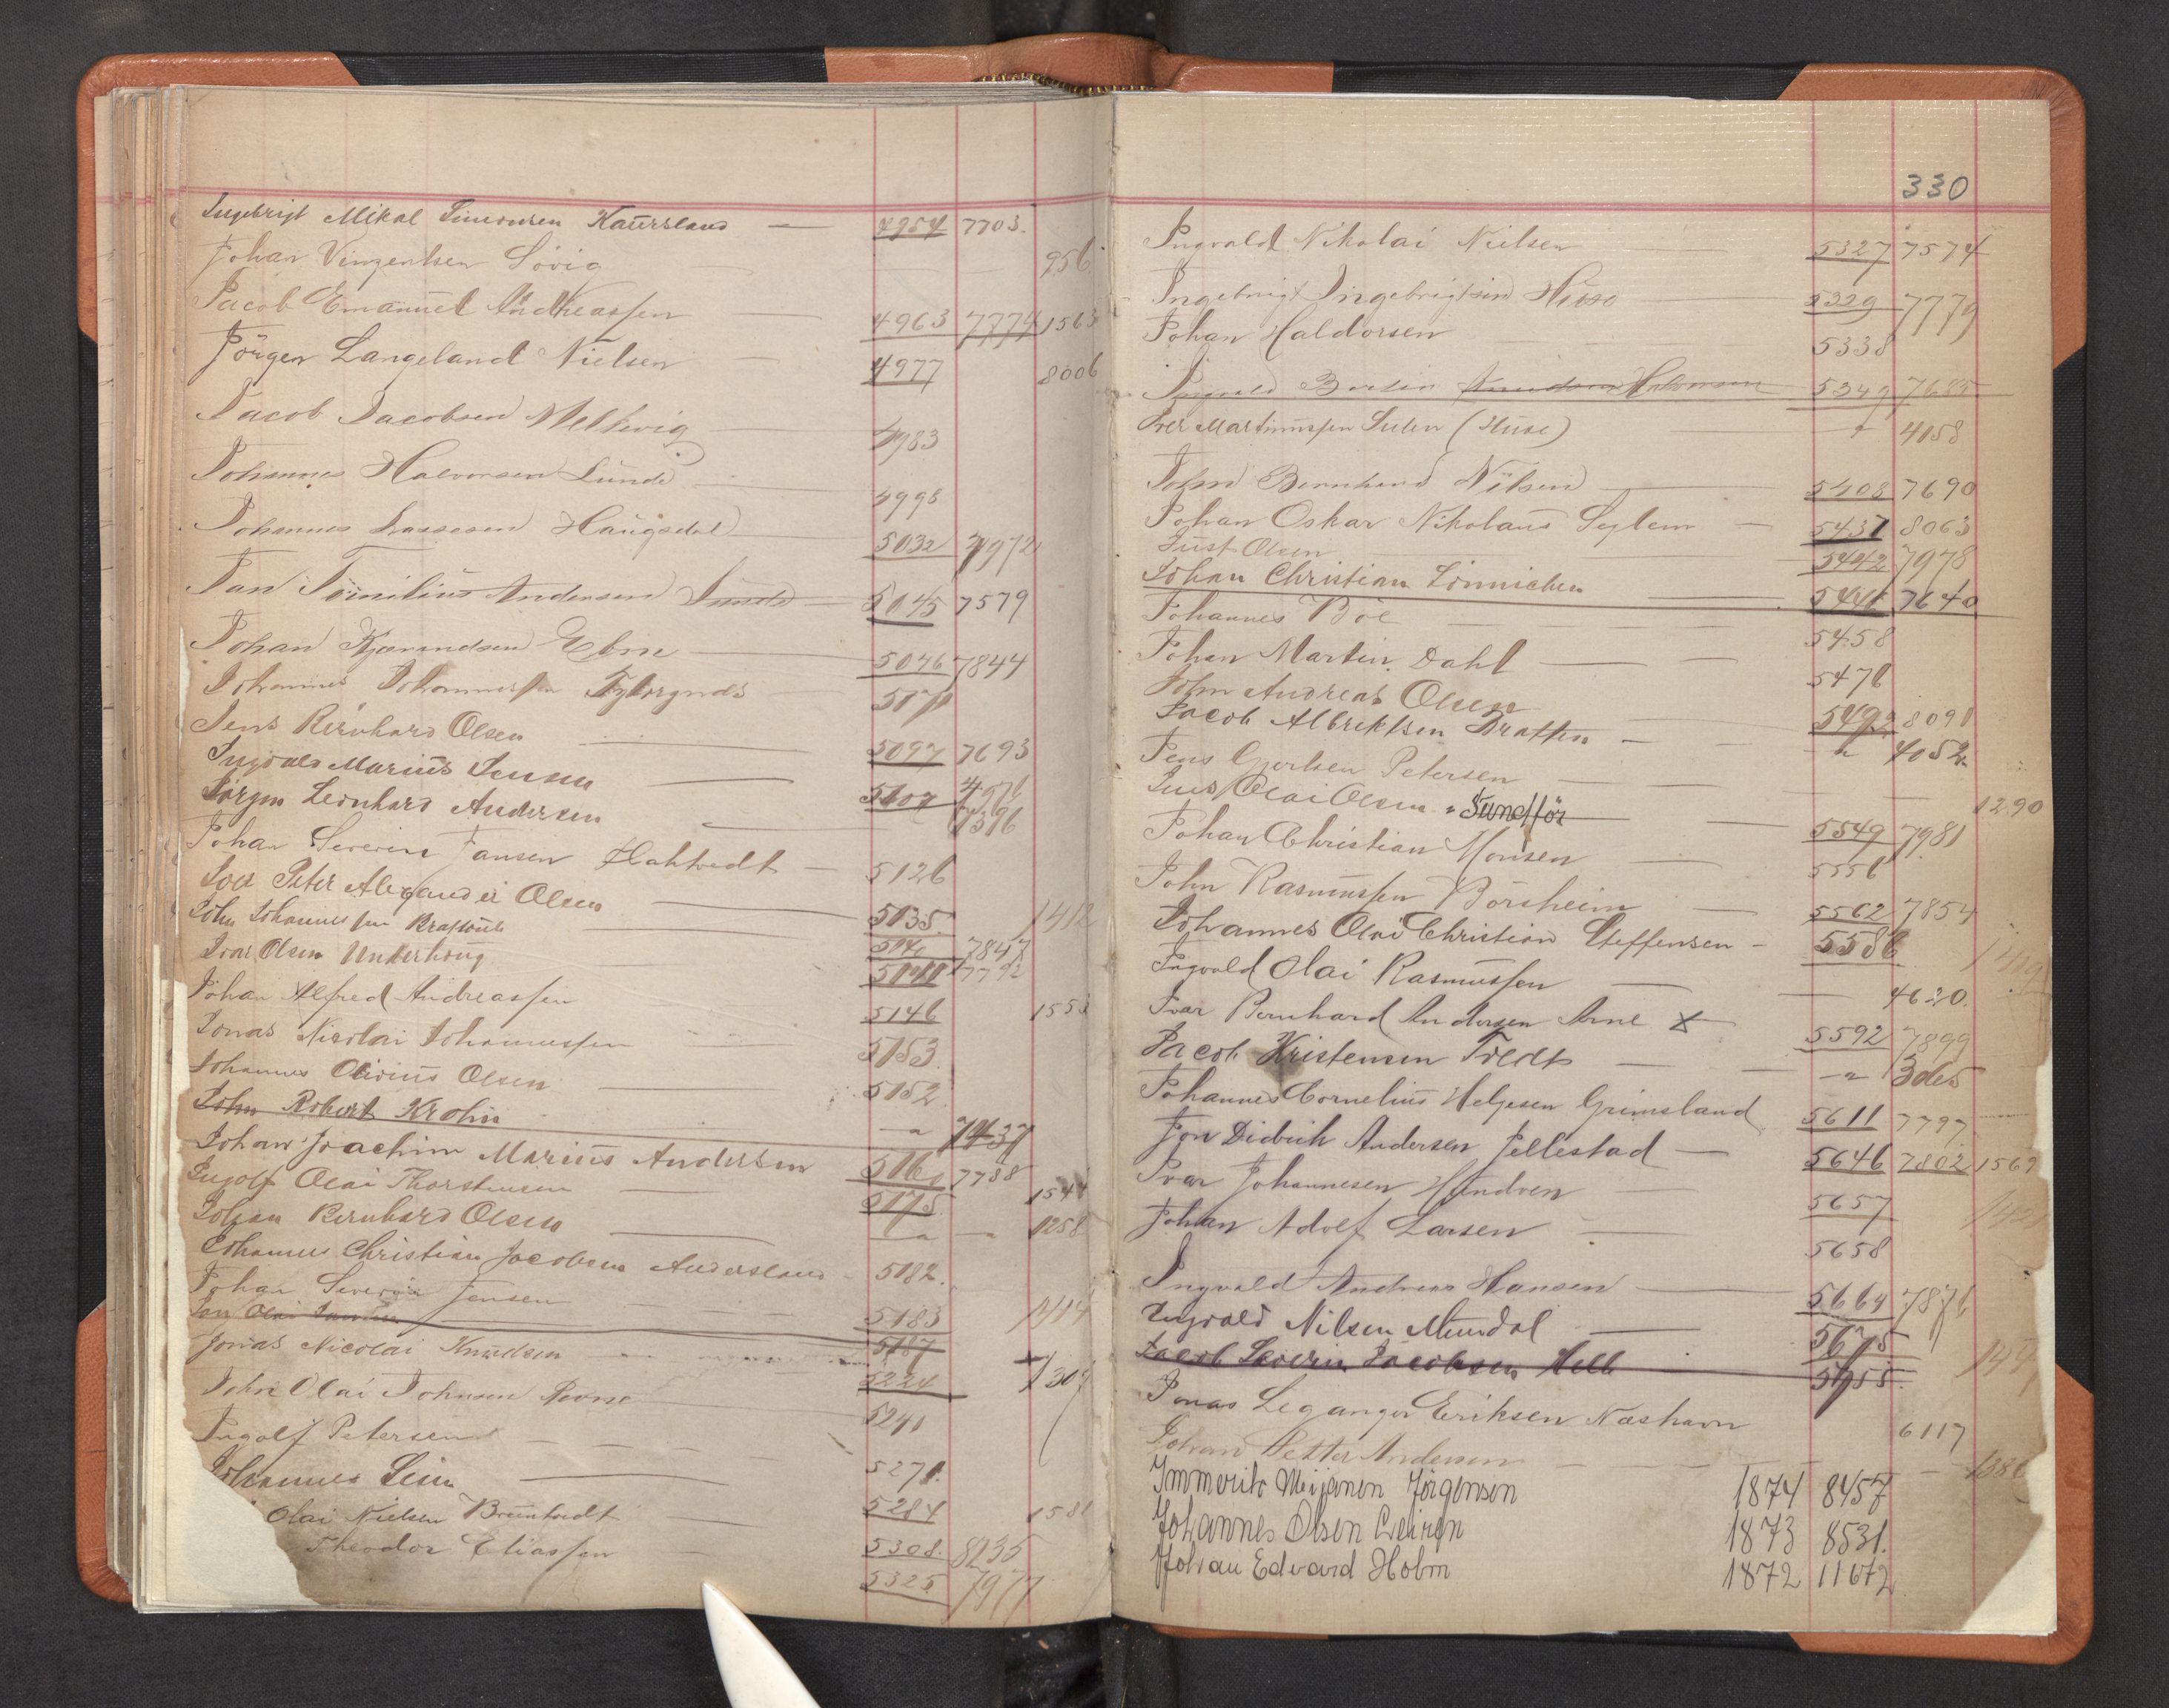 Ingebrigt Mikal Simonsen Kaursland — 4954 7703.
Johan Vinzentsen Sövig — 956.
Jacob Emanuel Andreassen — 4963 7774 1563
Jörgen Langeland Nielsen — 4977 8006
Jacob Jacobsen Meltvig — 4983
Johannes Halvorsen Lunde — 4998
Johannes Lassesen Haugsdal — 5032 7972
Jan Andersen — 5045 7579
Johan — 5046 7844
Johannes Johannessen —
Jens Bernhard Olsen — 5097 7693
Ingvald Marius Jensen — 5107
Jörgen Leonhard Andersen — 1316
Johan Severin Jansen — 5126
Peter Alexander Olsen — 5135. 1412
John Johannessen — 7847
Ivar Olsen Underhoug 7792
Johan Alfred Andreassen 5146 1553
Jonas Nicolai Johannessen — 5153.
Johannes Olivius Olsen — 5152
John Robert Krohn — " 7437
Johan Joachim Marius Andersen 5160 7788
Ingolf Olai Thorstensen — 5175 154
Johan Bernhard Olsen — " — 1258
Johannes Christian Jacobsen Andersland — 5182.
Johan Severin Jensen — 5183 1414
Jan Olai — 5187
Jonas Nicolai Knudsen — 5224 1307
John Olai Johnsen — 5241
Ingolf Petersen — 5271.
Johannes Lein — 5284 1581
Olai Nielsen Bruntvedt — 5308. 8235
Theodor Eliassen — 5325 7977
330
Ingvald Nikolai Nielsen — 5327 7574
Ingebrigt Ingebrigtsen Huse — 5329 7779
Johan Haldorsen — 5338
Ingvald 5349 7685
Iver Martinussen Sulen (Huse) — " 4058
John Bernhard Nilsen — 5408 7690
Johan Oskar Nikolaus Seglem — 5437 8063
Just Olsen — 5442 7978
Johan Christian Lönnichen — 5446 7640
Johannes Böe — 5458
Johan Martin Dahl — 5476
John Andreas Olsen — 5492 8091
Jacob Albriktsen Bratten — " 4052.
Jens Gjertsen Petersen — 1290
Jens Olai Olsen. "Sundför — 5549 7981
Johan Christian Monsen — 5556
John Rasmussen Börsheim — 5562 7854
Johannes Olai Christian Steffensen — 5586
Ingvald Olai Rasmussen — 4620.
Ivar Bernhard Andersen Arne X — 5592 7899
Jacob Kristensen Tvedt — "
Johannes Cornelius Helgesen Grimsland 5611 7797
Jon Didrik Andersen Fellestad — 5646 7802 1569
Ivar Johannesen Hundven — 5657
Johan Adolf Larsen — 5658
Ingvald Andreas Hansen — 5664 7876
Ingvald Nilsen Mundal — 5675
Jacob Severin Jacobsen Helle
Jonas Leganger Eriksen Næshavn 6117
Johan Petter Andersen —
Immerits Meijanen Jörgensen 1874 8457
Johannes Olsen 1873 8531.
Johan Edvard Holm 1872 11672